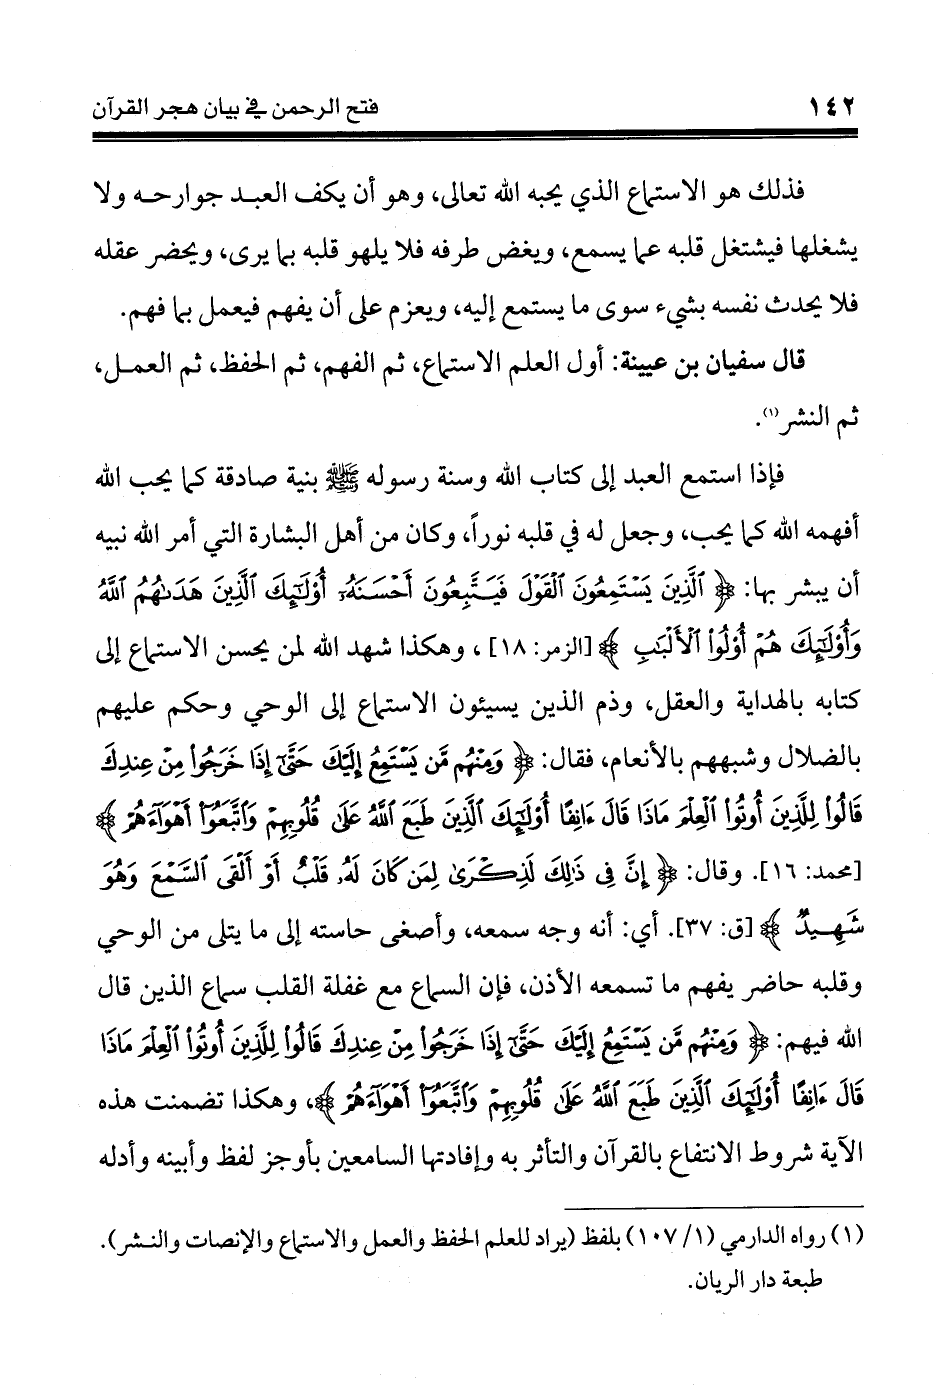 ١٤٢ فتح الرحمن في بيان هجر القرآن
فذلك هو الاستماع الذي يحبه الله تعالى، وهو أن يكف العبد جوارحه ولا
يشغلها فيشتغل قلبه عما يسمع، ويغض طرفه فلا يلهو قلبه بما يرى، ويحضر عقله
فلا يحدث نفسه بشيء سوى ما يستمع إليه، ويعزم على أن يفهم فيعمل بما فهم.
قال سفيان بن عيينة: أول العلم الاستماع، ثم الفهم، ثم الحفظ، ثم العمل،
ثم النشر(١).
فإذا استمع العبد إلى كتاب الله وسنة رسوله ﷺ بنية صادقة كما يحب الله
أفهمه الله كما يحب، وجعل له في قلبه نوراً، وكان من أهل البشارة التي أمر الله نبيه
أن يبشر بها: ﴿ ٱلَّذِينَ يَسْتَمِعُونَ ٱلْقَوْلَ فَيَتَّبِعُونَ أَحْسَنَهُۥٓ أُو۟لَٰٓئِكَ ٱلَّذِينَ هَدَىٰهُمُ ٱللَّهُ
وَأُو۟لَٰٓئِكَ هُمْ أُو۟لُوا۟ ٱلْأَلْبَٰبِ ﴾ [الزمر: ١٨]، وهكذا شهد الله لمن يحسن الاستماع إلى
كتابه بالهداية والعقل، وذم الذين يسيئون الاستماع إلى الوحي وحكم عليهم
بالضلال وشبههم بالأنعام، فقال: ﴿ وَمِنْهُم مَّن يَسْتَمِعُ إِلَيْكَ حَتَّىٰٓ إِذَا خَرَجُوا۟ مِنْ عِندِكَ
قَالُوا۟ لِلَّذِينَ أُوتُوا۟ ٱلْعِلْمَ مَاذَا قَالَ ءَانِفًا أُو۟لَٰٓئِكَ ٱلَّذِينَ طَبَعَ ٱللَّهُ عَلَىٰ قُلُوبِهِمْ وَٱتَّبَعُوٓا۟ أَهْوَآءَهُمْ ﴾
[محمد: ١٦]. وقال: ﴿ إِنَّ فِى ذَٰلِكَ لَذِكْرَىٰ لِمَن كَانَ لَهُۥ قَلْبٌ أَوْ أَلْقَى ٱلسَّمْعَ وَهُوَ
شَهِيدٌ ﴾ [ق: ٣٧]. أي: أنه وجه سمعه، وأصغى حاسته إلى ما يتلى من الوحي
وقلبه حاضر يفهم ما تسمعه الأذن، فإن السماع مع غفلة القلب سماع الذين قال
الله فيهم: ﴿ وَمِنْهُم مَّن يَسْتَمِعُ إِلَيْكَ حَتَّىٰٓ إِذَا خَرَجُوا۟ مِنْ عِندِكَ قَالُوا۟ لِلَّذِينَ أُوتُوا۟ ٱلْعِلْمَ مَاذَا
قَالَ ءَانِفًا أُو۟لَٰٓئِكَ ٱلَّذِينَ طَبَعَ ٱللَّهُ عَلَىٰ قُلُوبِهِمْ وَٱتَّبَعُوٓا۟ أَهْوَآءَهُمْ ﴾، وهكذا تضمنت هذه
الآية شروط الانتفاع بالقرآن والتأثر به وإفادتها السامعين بأوجز لفظ وأبينه وأدله
(١) رواه الدارمي (١/ ١٠٧) بلفظ (يراد للعلم الحفظ والعمل والاستماع والإنصات والنشر).
طبعة دار الريان.